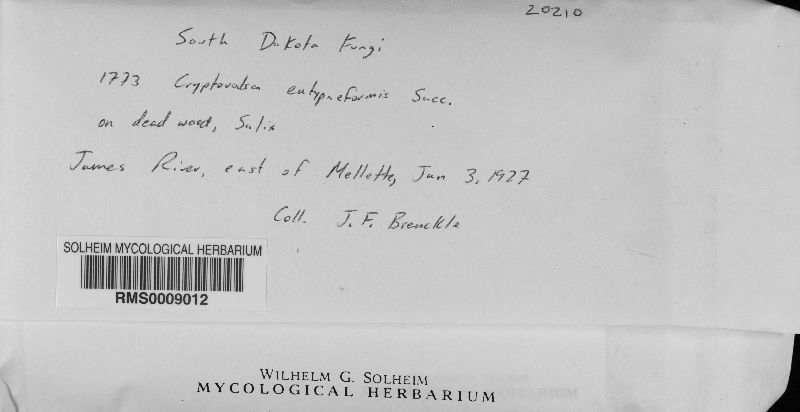 20210
South Dakota Fungi
1773 Cryptovalsa eutypaeformis Sacc.
on dead wood, Salix
James River, east of Mellette, Jan 3, 1927
Coll. J. F. Brenckle
SOLHEIM MYCOLOGICAL HERBARIUM
RMS0009012
WILHELM G. SOLHEIM
MYCOLOGICAL HERBARIUM